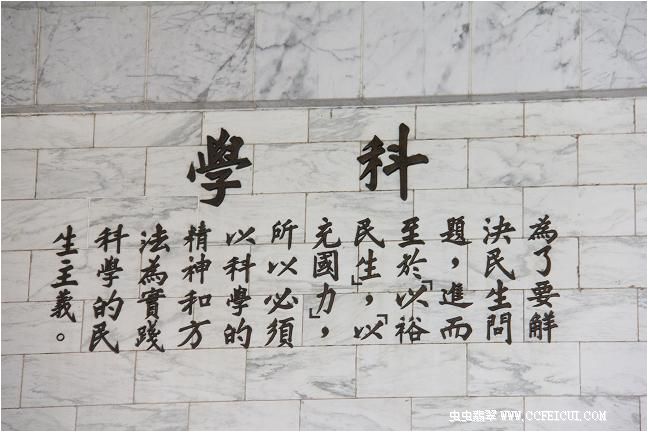 科學
為了要解
決民生問
題，進而
至於「以裕
民生」，「以
充國力」，
所以必須
以科學的
精神和方
法為實踐
科學的民
生主義。
虫虫翡翠 WWW.CCFEICUI.COM